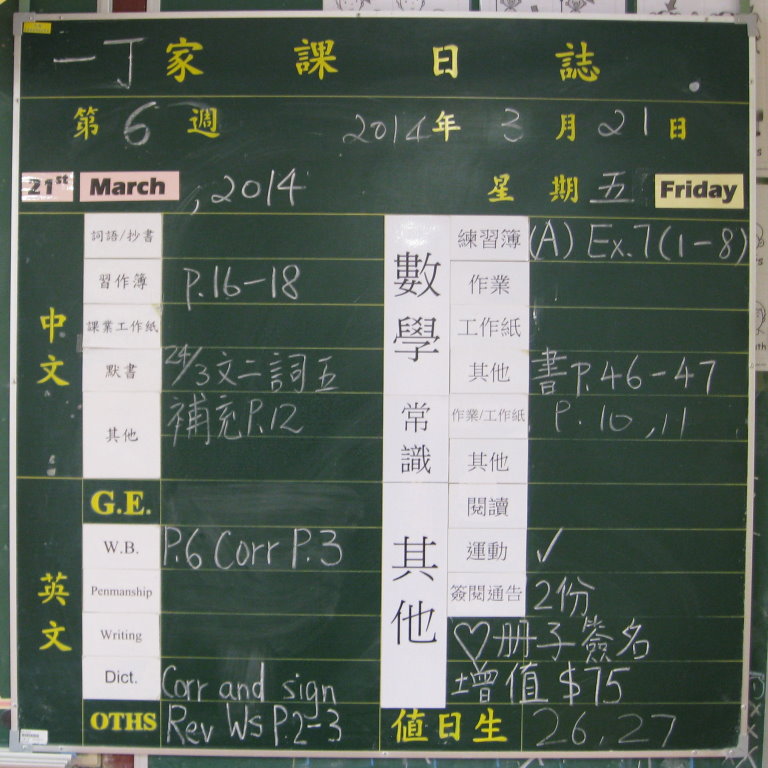 一丁家課日誌
第6週 2014年3月21日
21st March, 2014 星期五 Friday
中文
詞語/抄書
習作簿 P.16-18
課業工作紙
默書 24/3文二詞五
其他 補充P.12
英文
G.E.
W.B. P.6 Corr P.3
Penmanship
Writing
Dict. Corr and sign
OTHS Rev Ws P.2-3
數學
練習簿 (A) Ex.7(1-8)
作業
工作紙
其他 書P.46-47
常識
作業/工作紙 P.10,11
其他
其他
閱讀
運動 ✓
簽閱通告 2份
♡冊子簽名
增值$75
值日生 26,27